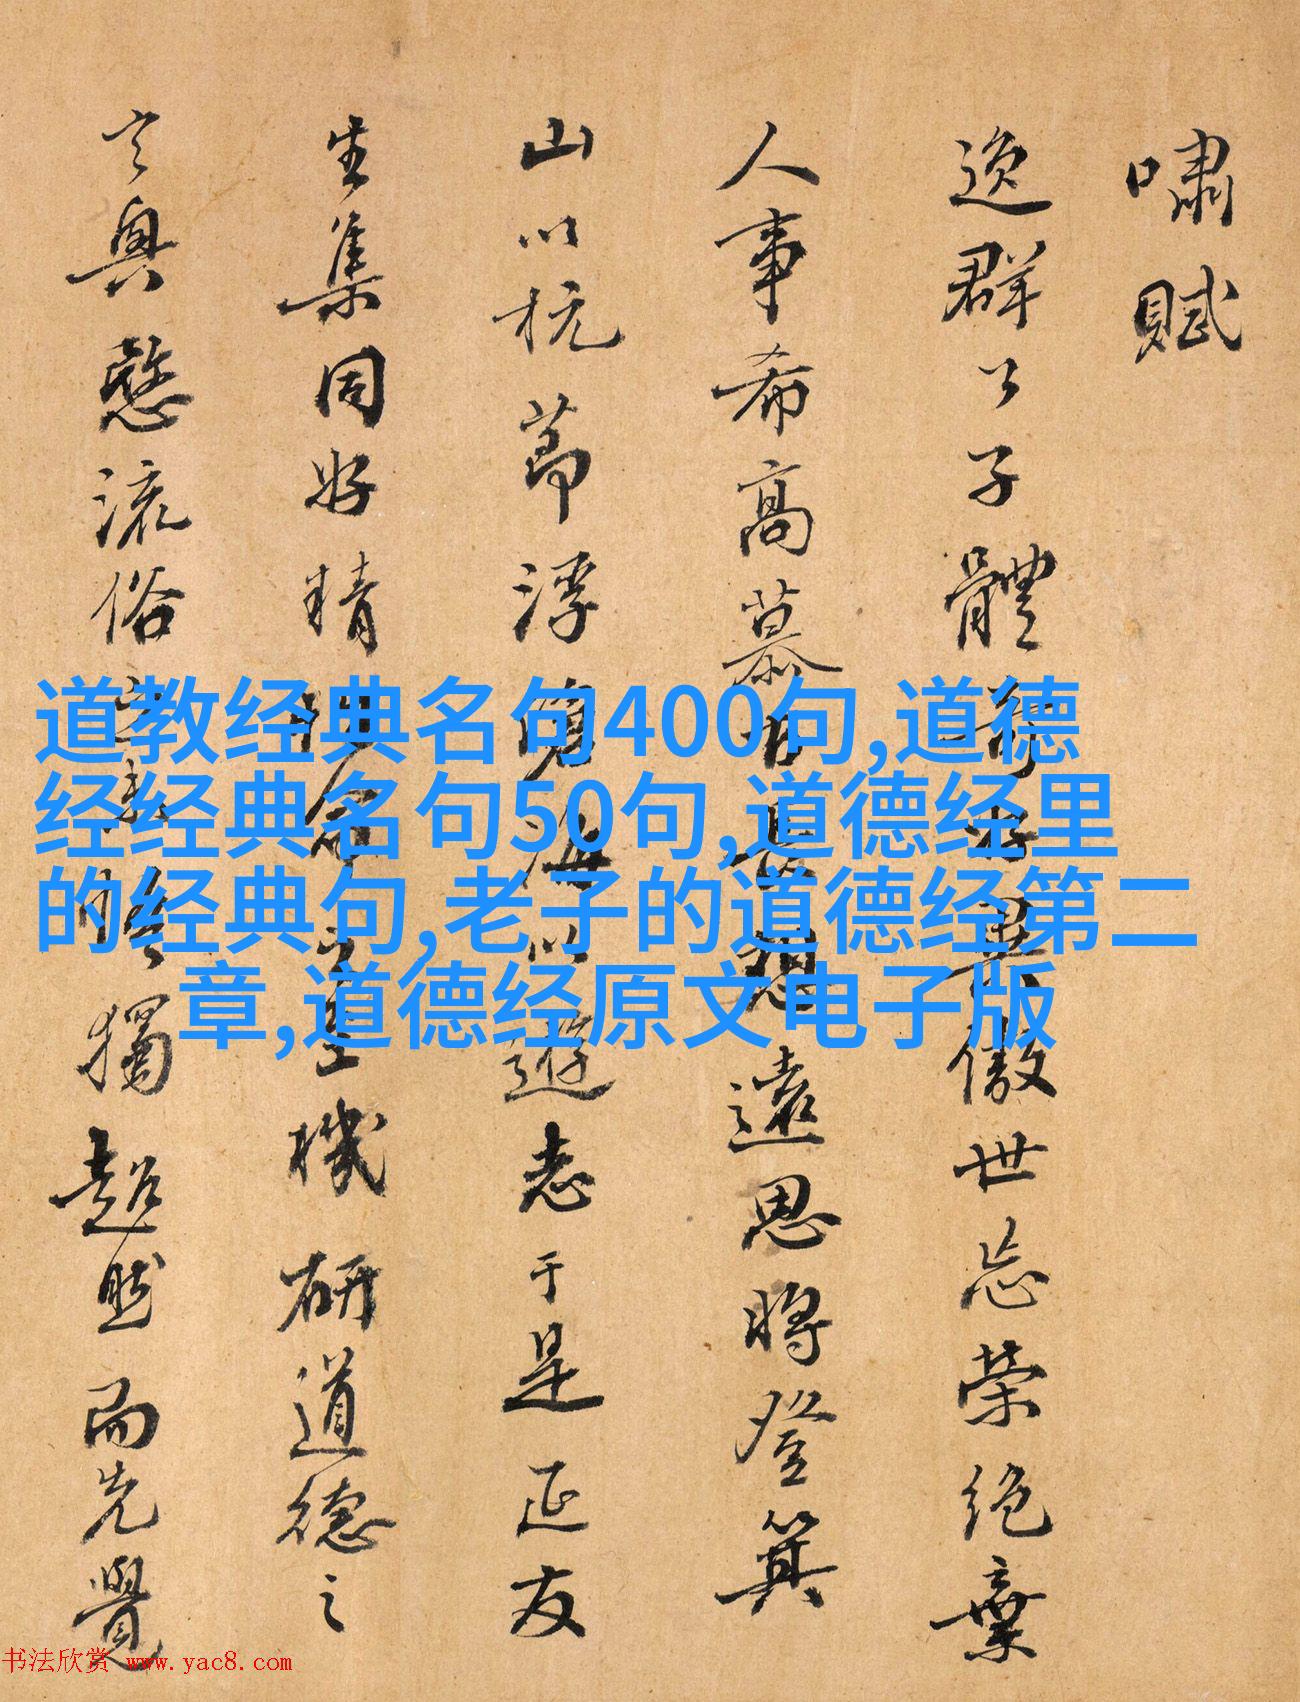 嘯賦
逸群公子體奇好異傲世忘榮絕棄
人事希高慕古長想遠思將登箕
山以抗節浮滄海以遊志于是延友
生集同好精性命之至機研道德之
玄奧愍流俗之未悟獨超然而先覺
道教经典名句400句,道德
经经典名句50句,道德经里
的经典句,老子的道德经第二
章,道德经原文电子版
书法欣赏 www.yac8.com